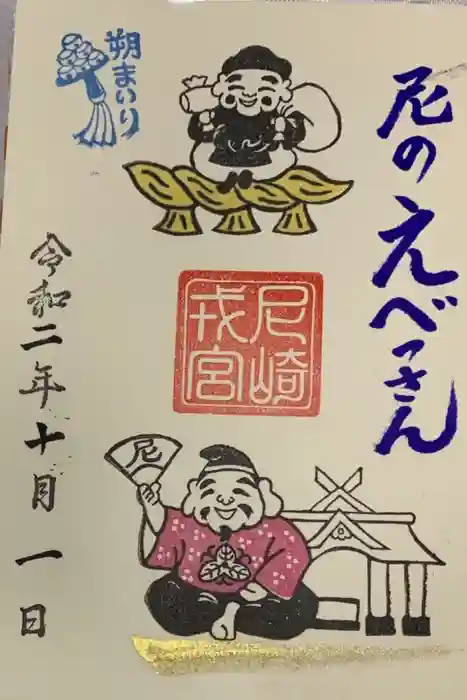 尼のえべっさん
朔まいり
尼崎
戎宮
尼
令和二年十月一日